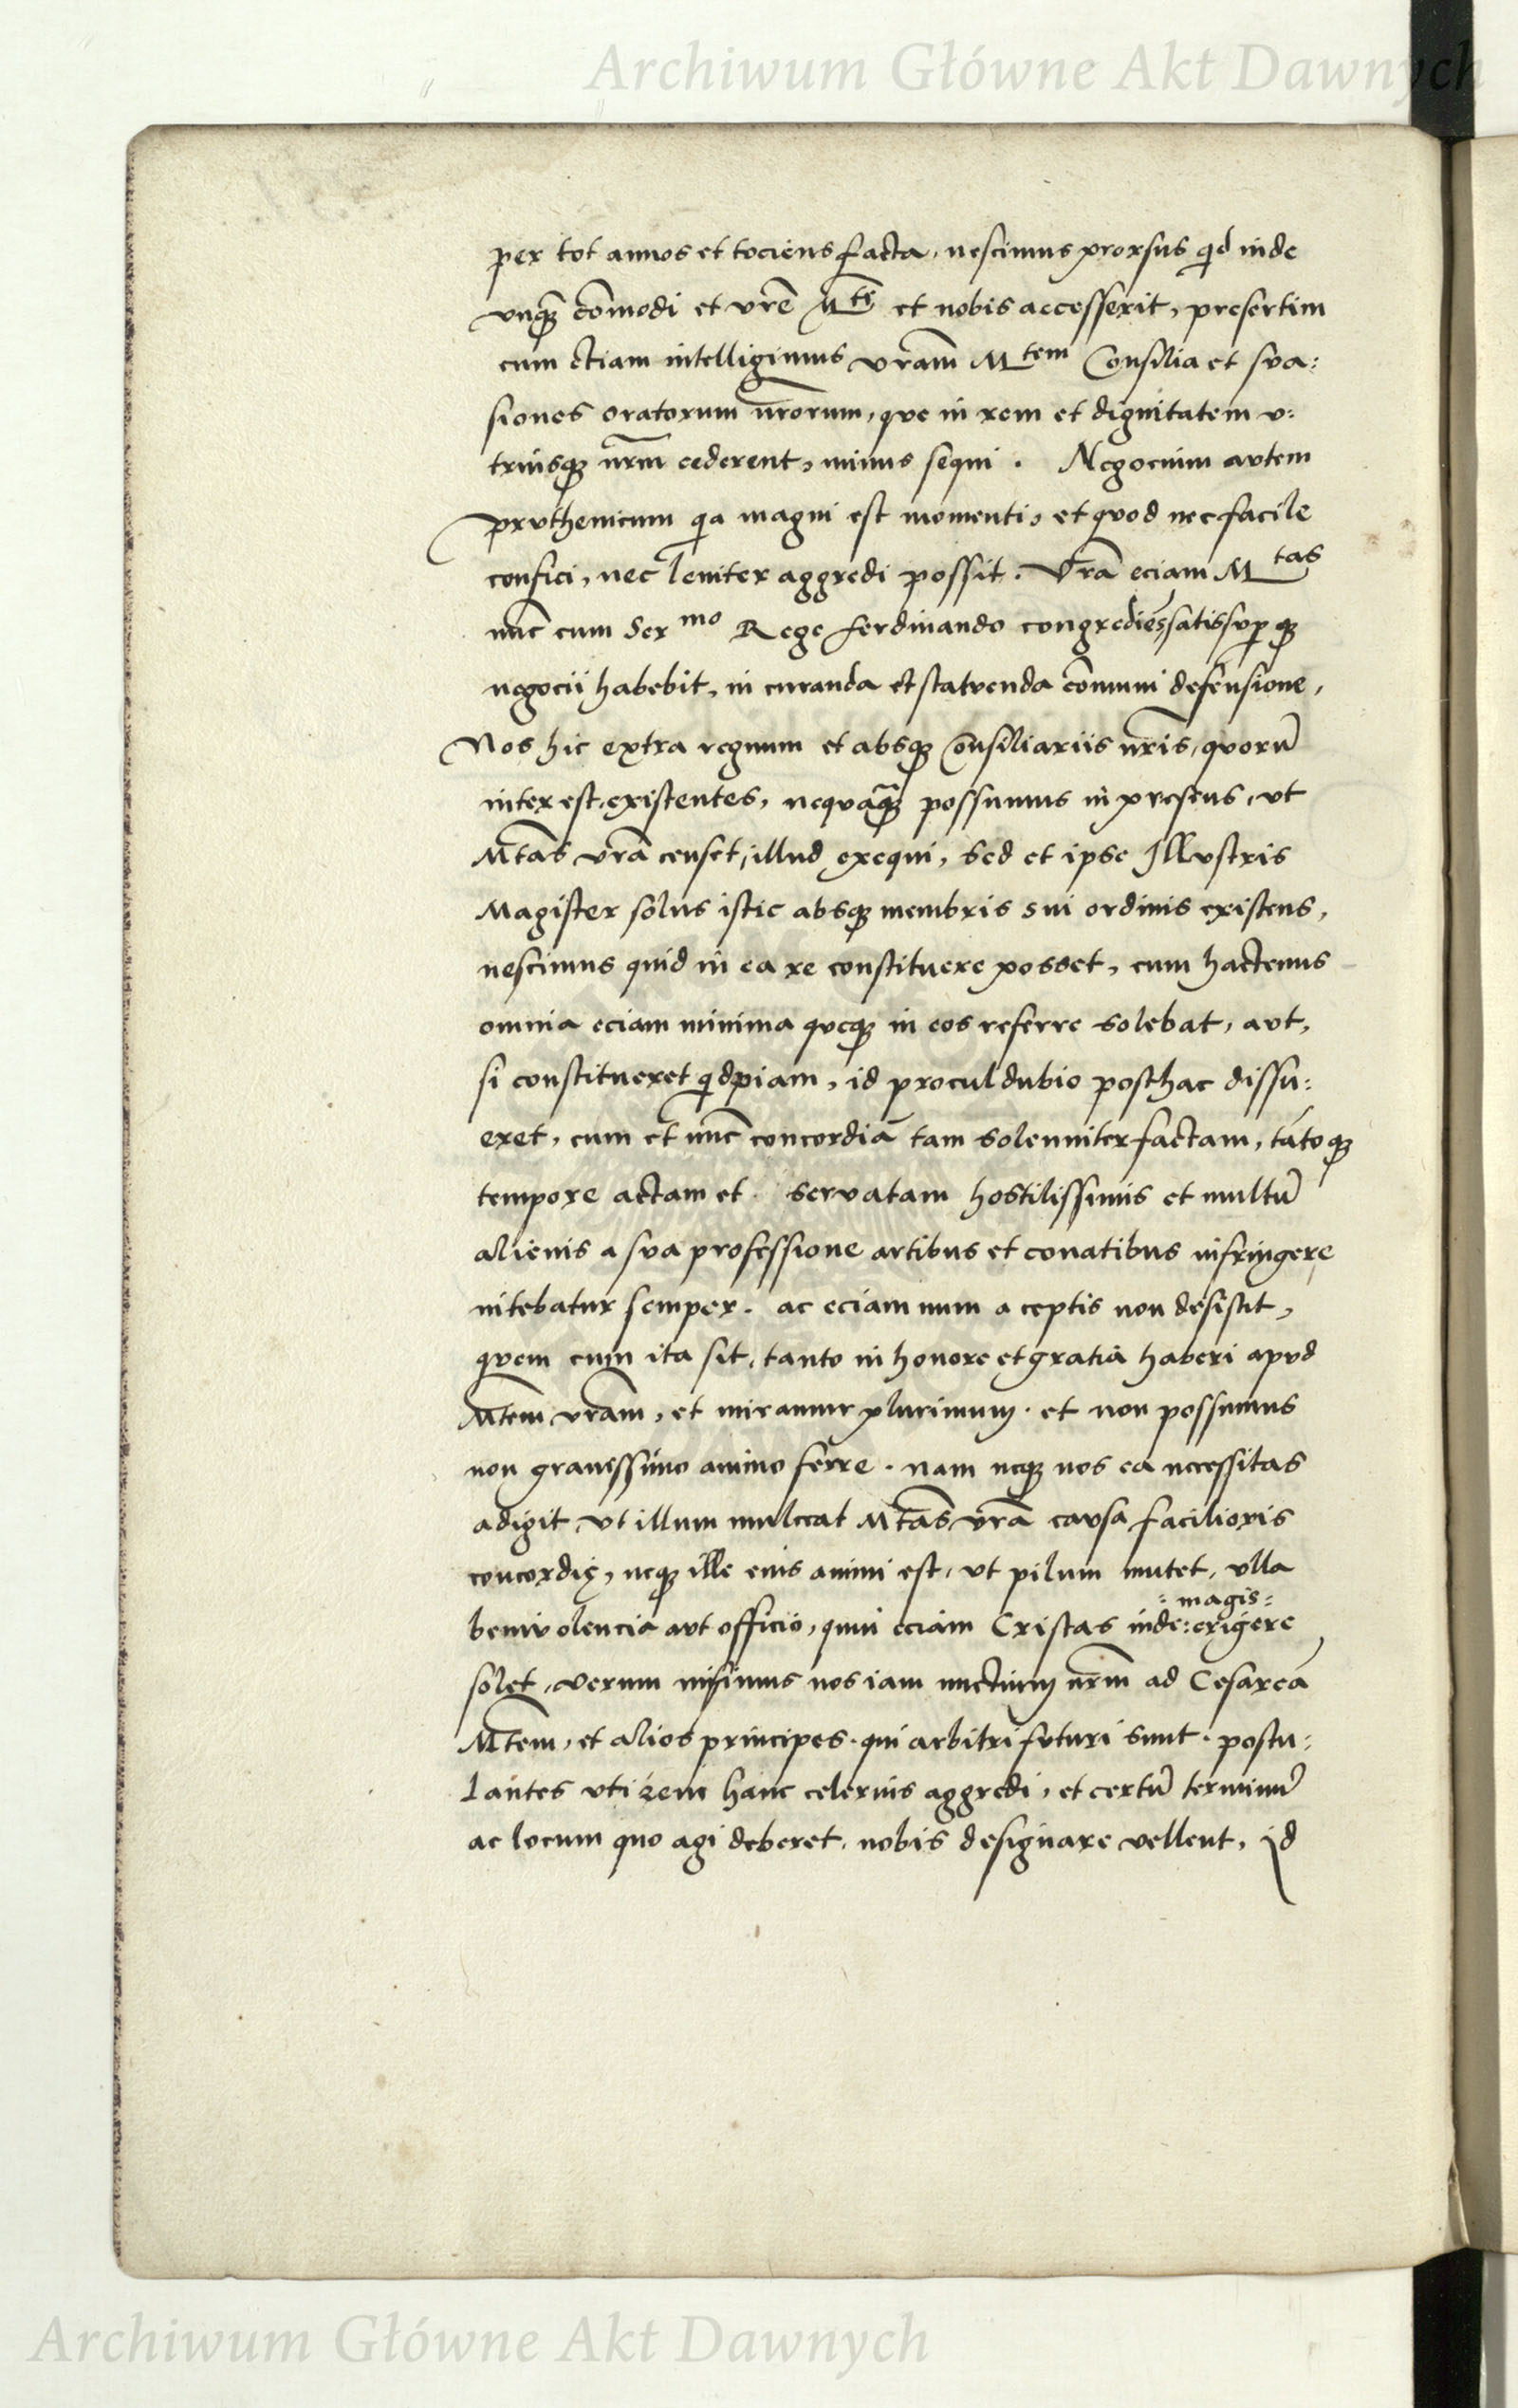 Archiwum Główne Akt Dawnych
per tot annos et tociens facta, nescimus prorsus qd inde
vnq̃ȝ cõmodi et vrẽ M^ti et nobis accesserit, presertim
cum etiam intelligimus vram̃ M^tem Consilia et sva:
siones oratorum nr̃orum, qve in rem et dignitatem v:
triusqȝ nrm̃ cederent, minus sequi . Negocium avtem
prvthenicum qa magni est momenti, et qvod nec facile
confici, nec leniter aggredi possit. Vrã eciam M^tas
nũc cum Ser^mo Rege ferdinando congrediẽs, satis svp qȝ
negocii habebit, in curanda et statvenda cõmuni defensione,
Nos hic extra regnum et absqȝ Consiliariis nr̃is, qvorũ
interest, existentes, neqvaq̃ȝ possumus in presens, vt
Mtãs vrã censet, illud exequi, Sed et ipse Illvstris
Magister solus istic absqȝ membris sui ordinis existens,
nescimus quid in ea re constituere posset, cum hactenus
omnia eciam minima qveqȝ in eos referre solebat, avt,
si constitueret qdpiam, id procul dubio posthac dissu:
eret, cum et nũc concordiã tam solenniter factam, tãtoqȝ
tempore actam et . servatam hostilissimis et multũ
alienis a sva professione artibus et conatibus infringere
nitebatur semper. ac eciam num a ceptis non desistit,
qvem cum ita sit, tanto in honore et gratia haberi apvd
Mtẽm vram̃, et miramur plurimum . et non possumus
non gravissimo animo ferre . nam neqȝ nos ea necessitas
adigit, vt illum mulceat Mtãs vrã cavsa facilioris
concordię, neqȝ ille eius animi est, vt pilum mutet, vlla
benivolencia avt officio, quin eciam Cristas inde: erigere
:magis:
solet, verum misimus nos iam nuctium nrm̃ ad Cesareã
Mtẽm, et alios principes . qui arbitri fvturi sunt . postu:
lantes vti rem hanc celerius aggredi, et certũ terminũ
ac locum quo agi deberet, nobis designare vellent, id
Archiwum Główne Akt Dawnych